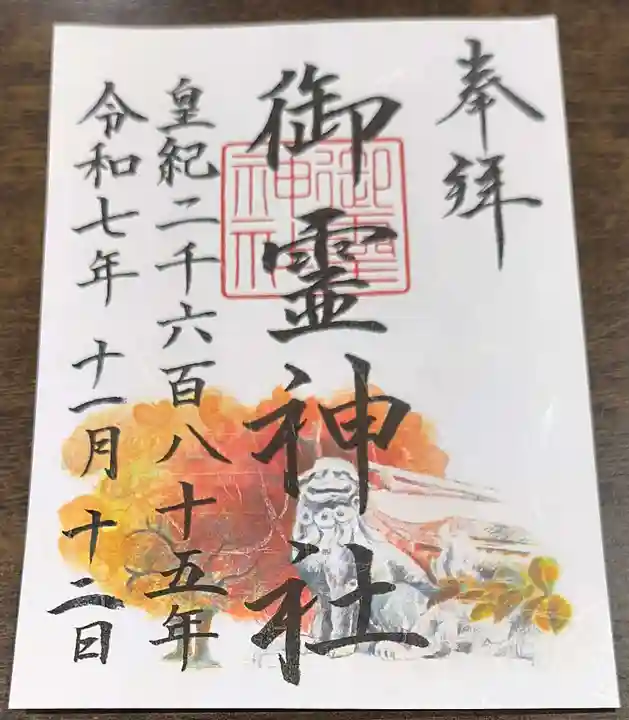 奉拝
御霊神社
御霊神社
皇紀二千六百八十五年
令和七年 十一月 十二日